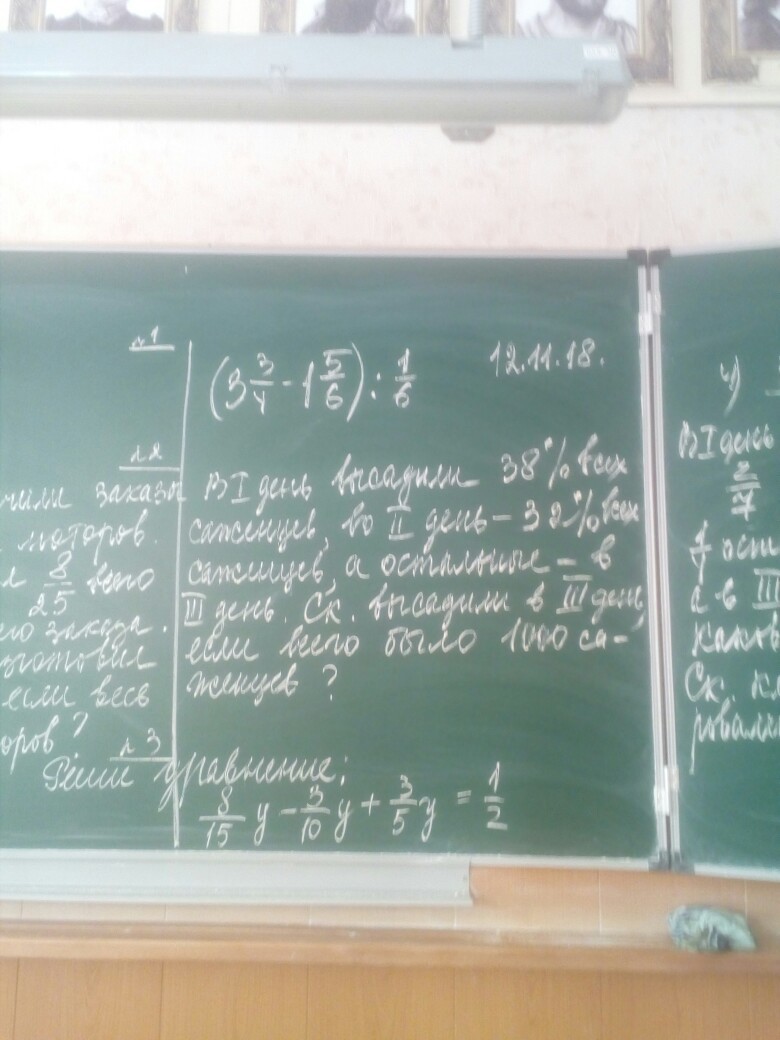 №1
(3 3/4 - 1 5/6) : 1/6
12.11.18.
№2
заказы
моторов.
8/25 всего
заказа.
если весь
В I день высадили 38% всех
саженцев, во II день - 32% всех
саженцев, а остальные - в
III день. Ск. высадили в III день,
если всего было 1000 са-
женцев?
№3
Реши уравнение:
8/15 y - 3/10 y + 3/5 y = 1/2
4)
В I день
в III
Ск.